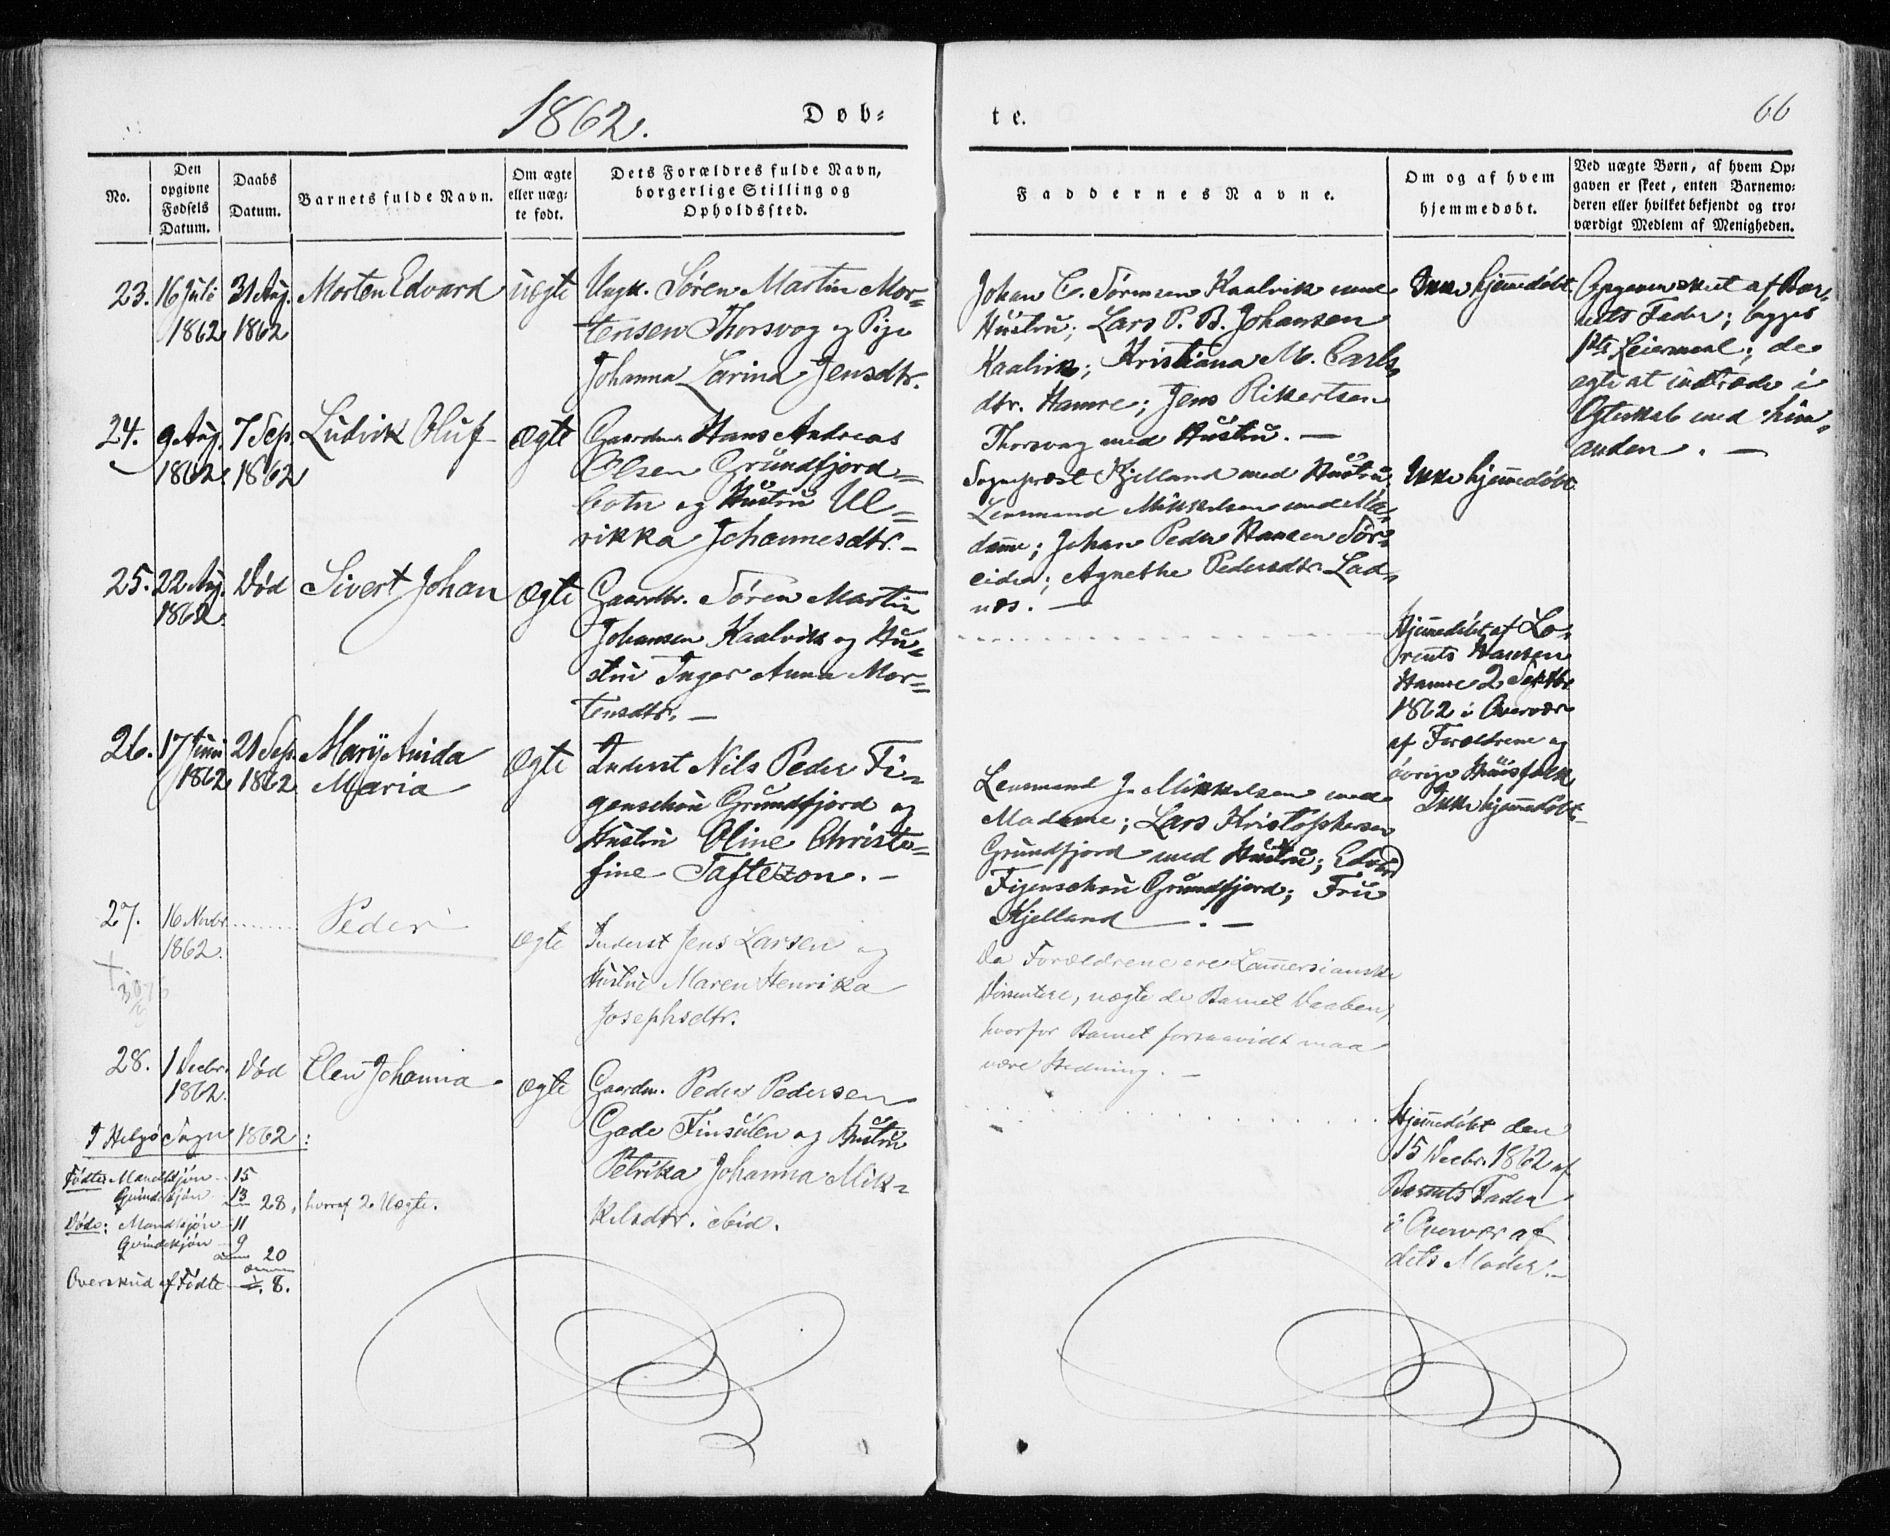 1862.
Døb-
te.
66
No.
Den opgivne Fødsels Datum.
Daabs Datum.
Barnets fulde Navn.
Om ægte eller uæg-te født.
Dets Forældres fulde Navn, borgerlige Stilling og Opholdssted.
Faddernes Navne.
Om og af hvem hjemmedøbt.
Ved uægte Børn, af hvem Op-gaven er skeet, enten Barnemo-deren eller hvilket bekjendt og tro-værdigt Medlem af Menigheden.
23. 16 Juli 1862
31 Aug. 1862
Morten Edvard
uægte
Ungk. Søren Martin Mor-
tensen Thorsvog og Pige
Johanna Larina Jensdtr.
Johan C. Sørensen Kaalvik med
Hustru; Lars P. B. Johansen
Kaalvik; Kristiana M. Carls
dtr. Hamre; Jens Rikertsen
Thorsvog med Hustru. —
Ikke hjemmedøbt.
Opgaven skeet af Bar-
nets Fader; begges
1ste Leiermaal; de
agte at indtræde i
Ægteskab med hin-
anden. —
24. 9 Aug. 1862
7 Sep. 1862
Ludvik Oluf
ægte
Gaardm. Hans Andreas
Olsen Grundfjord=
botn og Hustru Ul=
rikka Johannesdtr. —
Sognepræst Kjelland med Hustru;
Lensmand Mikkelsen med Ma-
dame; Johan Peder Hansen Sør-
eidet; Agnethe Pedersdtr. Lad-
næs. —
Ikke hjemmedøbt
25. 22 Aug. 1862
Død
Sivert Johan
ægte
Gaardbr. Søren Martin
Johansen Kaalvik og Hu-
stru Inger Anna Mor=
tensdtr. —
Hjemmedøbt af Lo-
rents Hansen
Hamre 2 Septbr
1862 i Overvær
af Forældrene og
øvrige Huusfolk
26. 17 Juni 1862
21 Sep. 1862
Mary Anida
Maria
ægte
Inderst Nils Peder Fi-
genschou Grundfjord og
Hustru Oline Christo=
fine Taftezon. —
Lensmand J. Mikkelsen med
Madame; Lars Kristophersen
Grundfjord med Hustru; Edvard
Figenschou Grundfjord; Fru
Kjelland —. —
Ikke hjemmedøbt. —
27. 16 Novbr. 1862.
Peder
ægte
Inderst Jens Larsen og
Hustru Maren Henrika
Josephsdtr.
Da Forældrene ere Lammersianske
Dissentere, nægte de Barnet Daaben,
hvorfor Barnet forsaavidt maa
være Hedning. —
28. 1 Decbr. 1862.
Død
Elen Johanna
ægte
Gaardm. Peder Pedersen
Gade Finsülen og Hustru
Petrika Johanna Mik-
kelsdtr. ibid.
Hjemmedøbt den
15 Decbr. 1862 af
Barnets Fader
i Overvær af
dets Moder. —
I Helgø Sogn 1862:
Fødte: Mandkjøn — 15
Qvindekjøn — 13
28, hvoraf 2 Uægte.
Døde: Mandkjøn — 11
Qvindekjøn — 9
20
Overskud af Fødte 8.